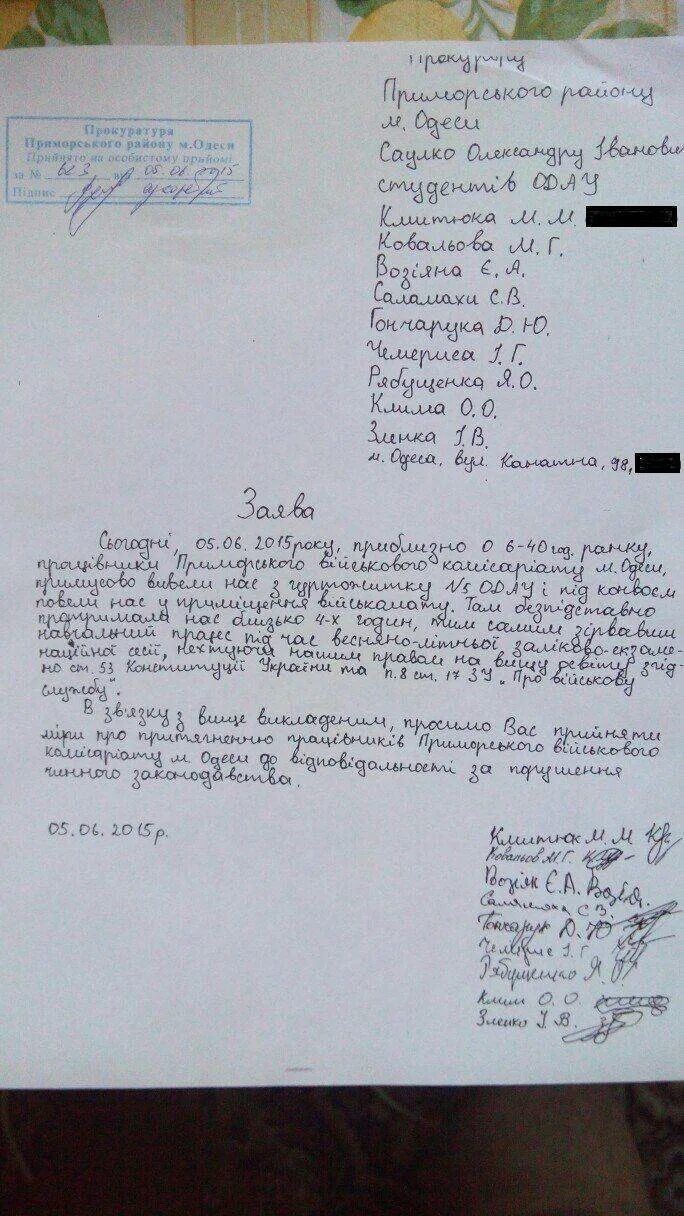 Прокурору
Приморського району
м. Одеси
Саулко Олександру Іванович
студентів ОДАУ
Кмитюка М. М.
Ковальова М. Г.
Возіяна Є. А.
Саламахи С. В.
Гончарука Д. Ю.
Чемериса І. Г.
Рябущенка Я. О.
Клима О. О.
Зленка І. В.
м. Одеса, вул. Канатна, 98,
Прокуратура
Приморського району м.Одеси
Прийнято на особистому прийомі
за № 623 від 05.06.2015
Підпис
Заява
Сьогодні, 05.06.2015 року, приблизно о 6-40 год. ранку,
працівники Приморського військового комісаріату м. Одеси,
примусово вивели нас з гуртожитку №5 ОДАУ і під конвоєм
повели нас у приміщення військомату. Там безпідставно
протримали нас близько 4-х годин, тим самим зірвавши
навчальний процес під час весняно-літньої заліково-екзаме-
наційної сесії, нехтуючи нашим правам на вищу освіту згід-
но ст. 53 Конституції України та п.8 ст. 17 ЗУ „Про військову
службу".
В зв'язку з вище викладеним, просимо Вас прийняти
міри про притягненню працівників Приморського військового
комісаріату м. Одеси до відповідальності за порушення
чинного законодавства.
05.06.2015р.
Кмитюк М. М
Ковальов М. Г.
Возіян Є. А. Возія.
Саламаха С. В.
Гончарук Д. Ю
Чемерис І. Г.
Рябущенко Я.
Клим О. О.
Зленко І. В.